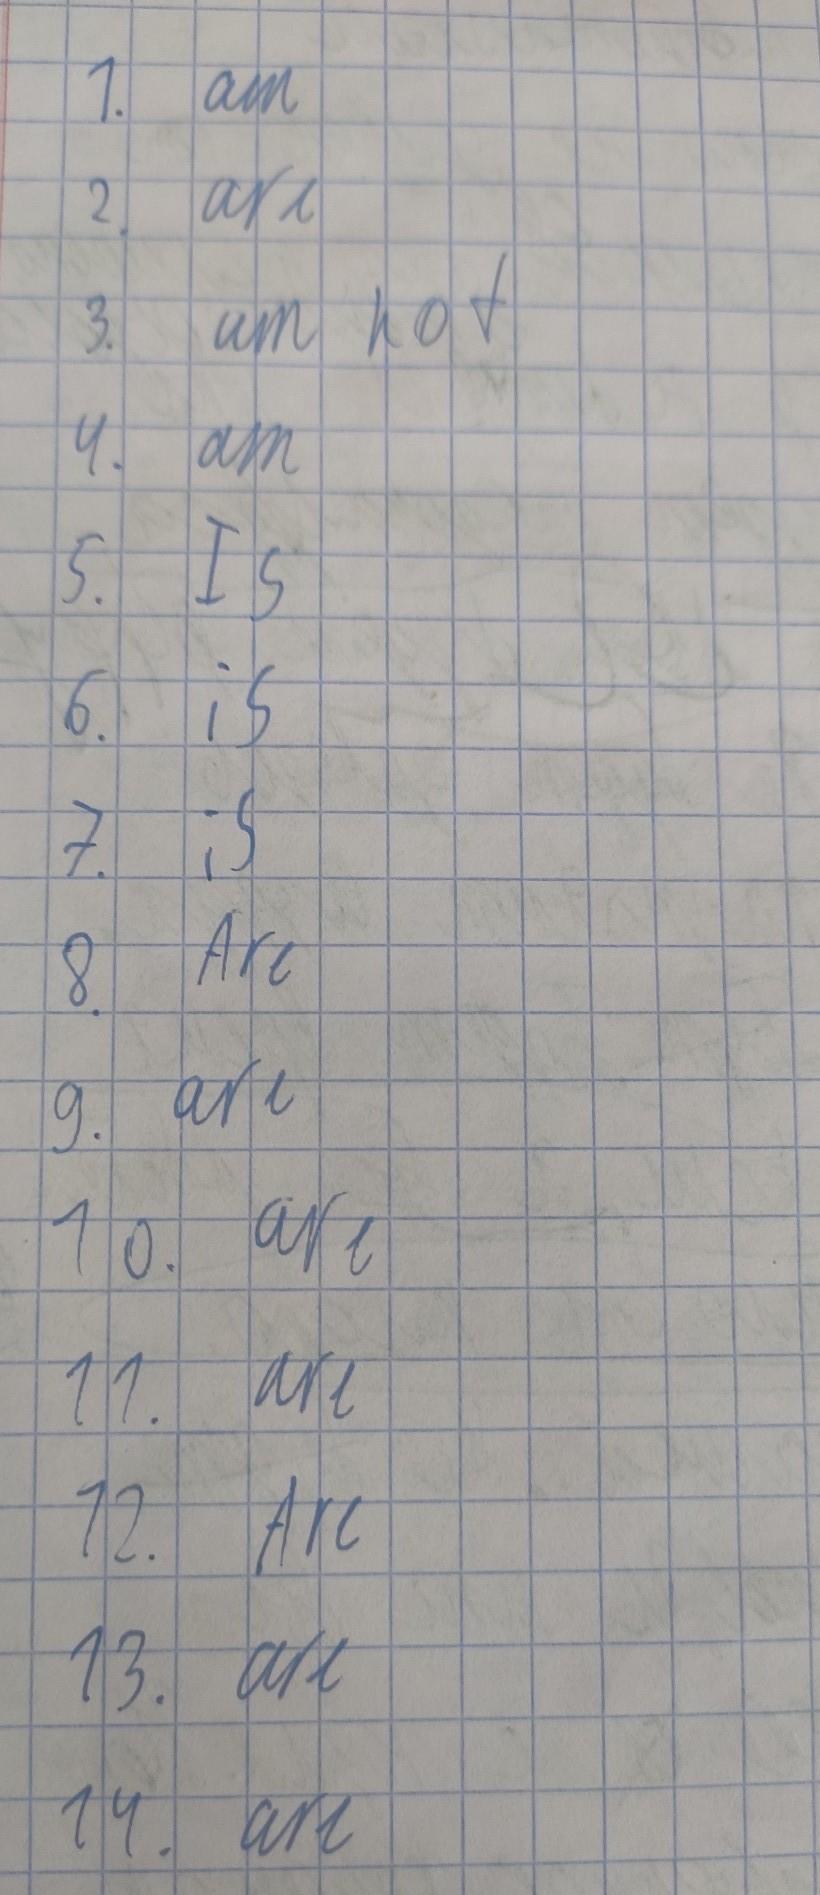 1. am
2. are
3. am not
4. am
5. Is
6. is
7. is
8. Are
9. are
10. are
11. are
12. Are
13. are
14. are